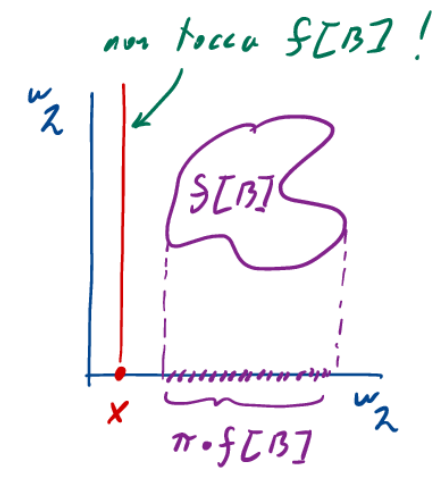 non tocca f[B] !
ω2
f[B]
x
ω2
π∘f[B]